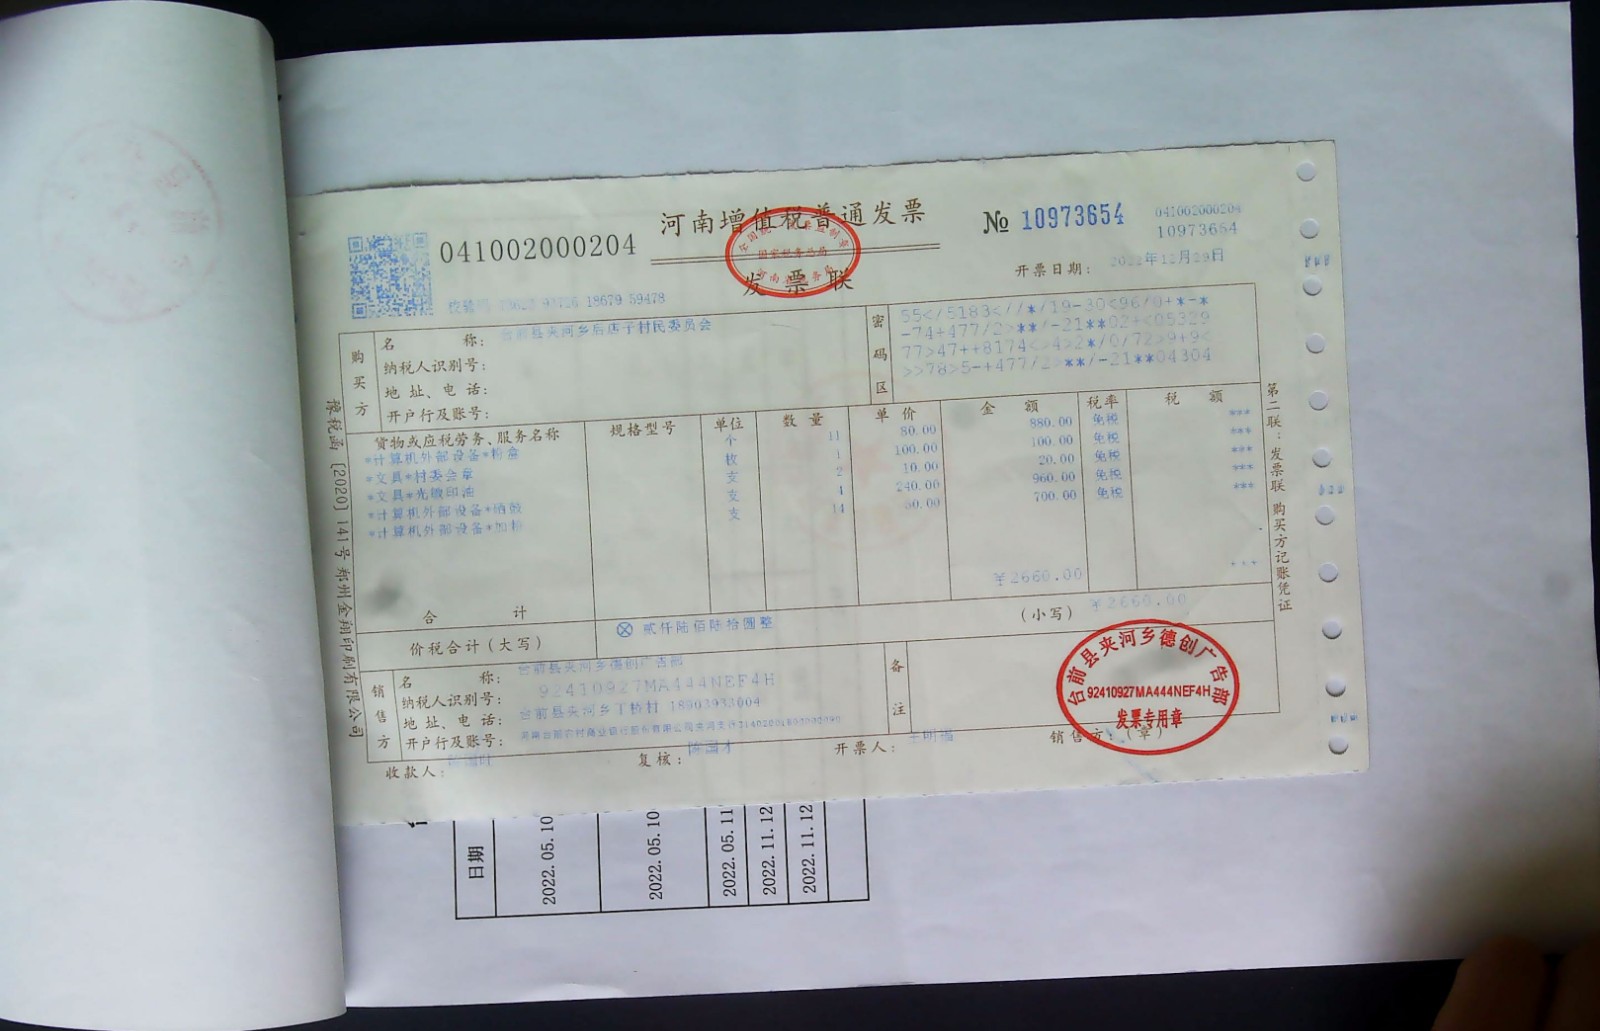 河南增值税普通发票
发票联
041002000204
№ 10973654
041002000204
10973654
开票日期： 2022年12月29日
校验 18679 59478
购买方
名 称： 台前县夹河乡后店子村民委员会
纳税人识别号：
地 址、电 话：
开户行及账号：
密码区
55</5183<//*/19-30<96/0+*-*
-74+477/2>**/-21**02+<05329
77>47++8174<>4>2*/0/72>9+9<
>>78>5-+477/2>**/-21**04304
货物或应税劳务、服务名称 规格型号 单位 数 量 单 价 金 额 税率 税 额
*计算机外部设备*粉盒 个 11 80.00 880.00 免税 ***
*文具*村委会章 枚 1 100.00 100.00 免税 ***
*文具*光敏印油 支 2 10.00 20.00 免税 ***
*计算机外部设备*硒鼓 支 4 240.00 960.00 免税 ***
*计算机外部设备*加粉 支 14 50.00 700.00 免税 ***
合 计 ¥2660.00 ***
价税合计（大写） ⊗ 贰仟陆佰陆拾圆整 （小写） ¥2660.00
销售方
名 称： 台前县夹河乡德创广告部
纳税人识别号： 92410927MA444NEF4H
地 址、电 话： 台前县夹河乡丁桥村 18903933004
开户行及账号：
备注
收款人：
复核：
开票人：
销售方：（章）
台前县夹河乡德创广告部
92410927MA444NEF4H
发票专用章
国家税务总局
第二联：发票联 购买方记账凭证
豫税函〔2020〕141号 郑州金翔印刷有限公司
日期
2022.05.10
2022.05.10
2022.05.11
2022.11.12
2022.11.12